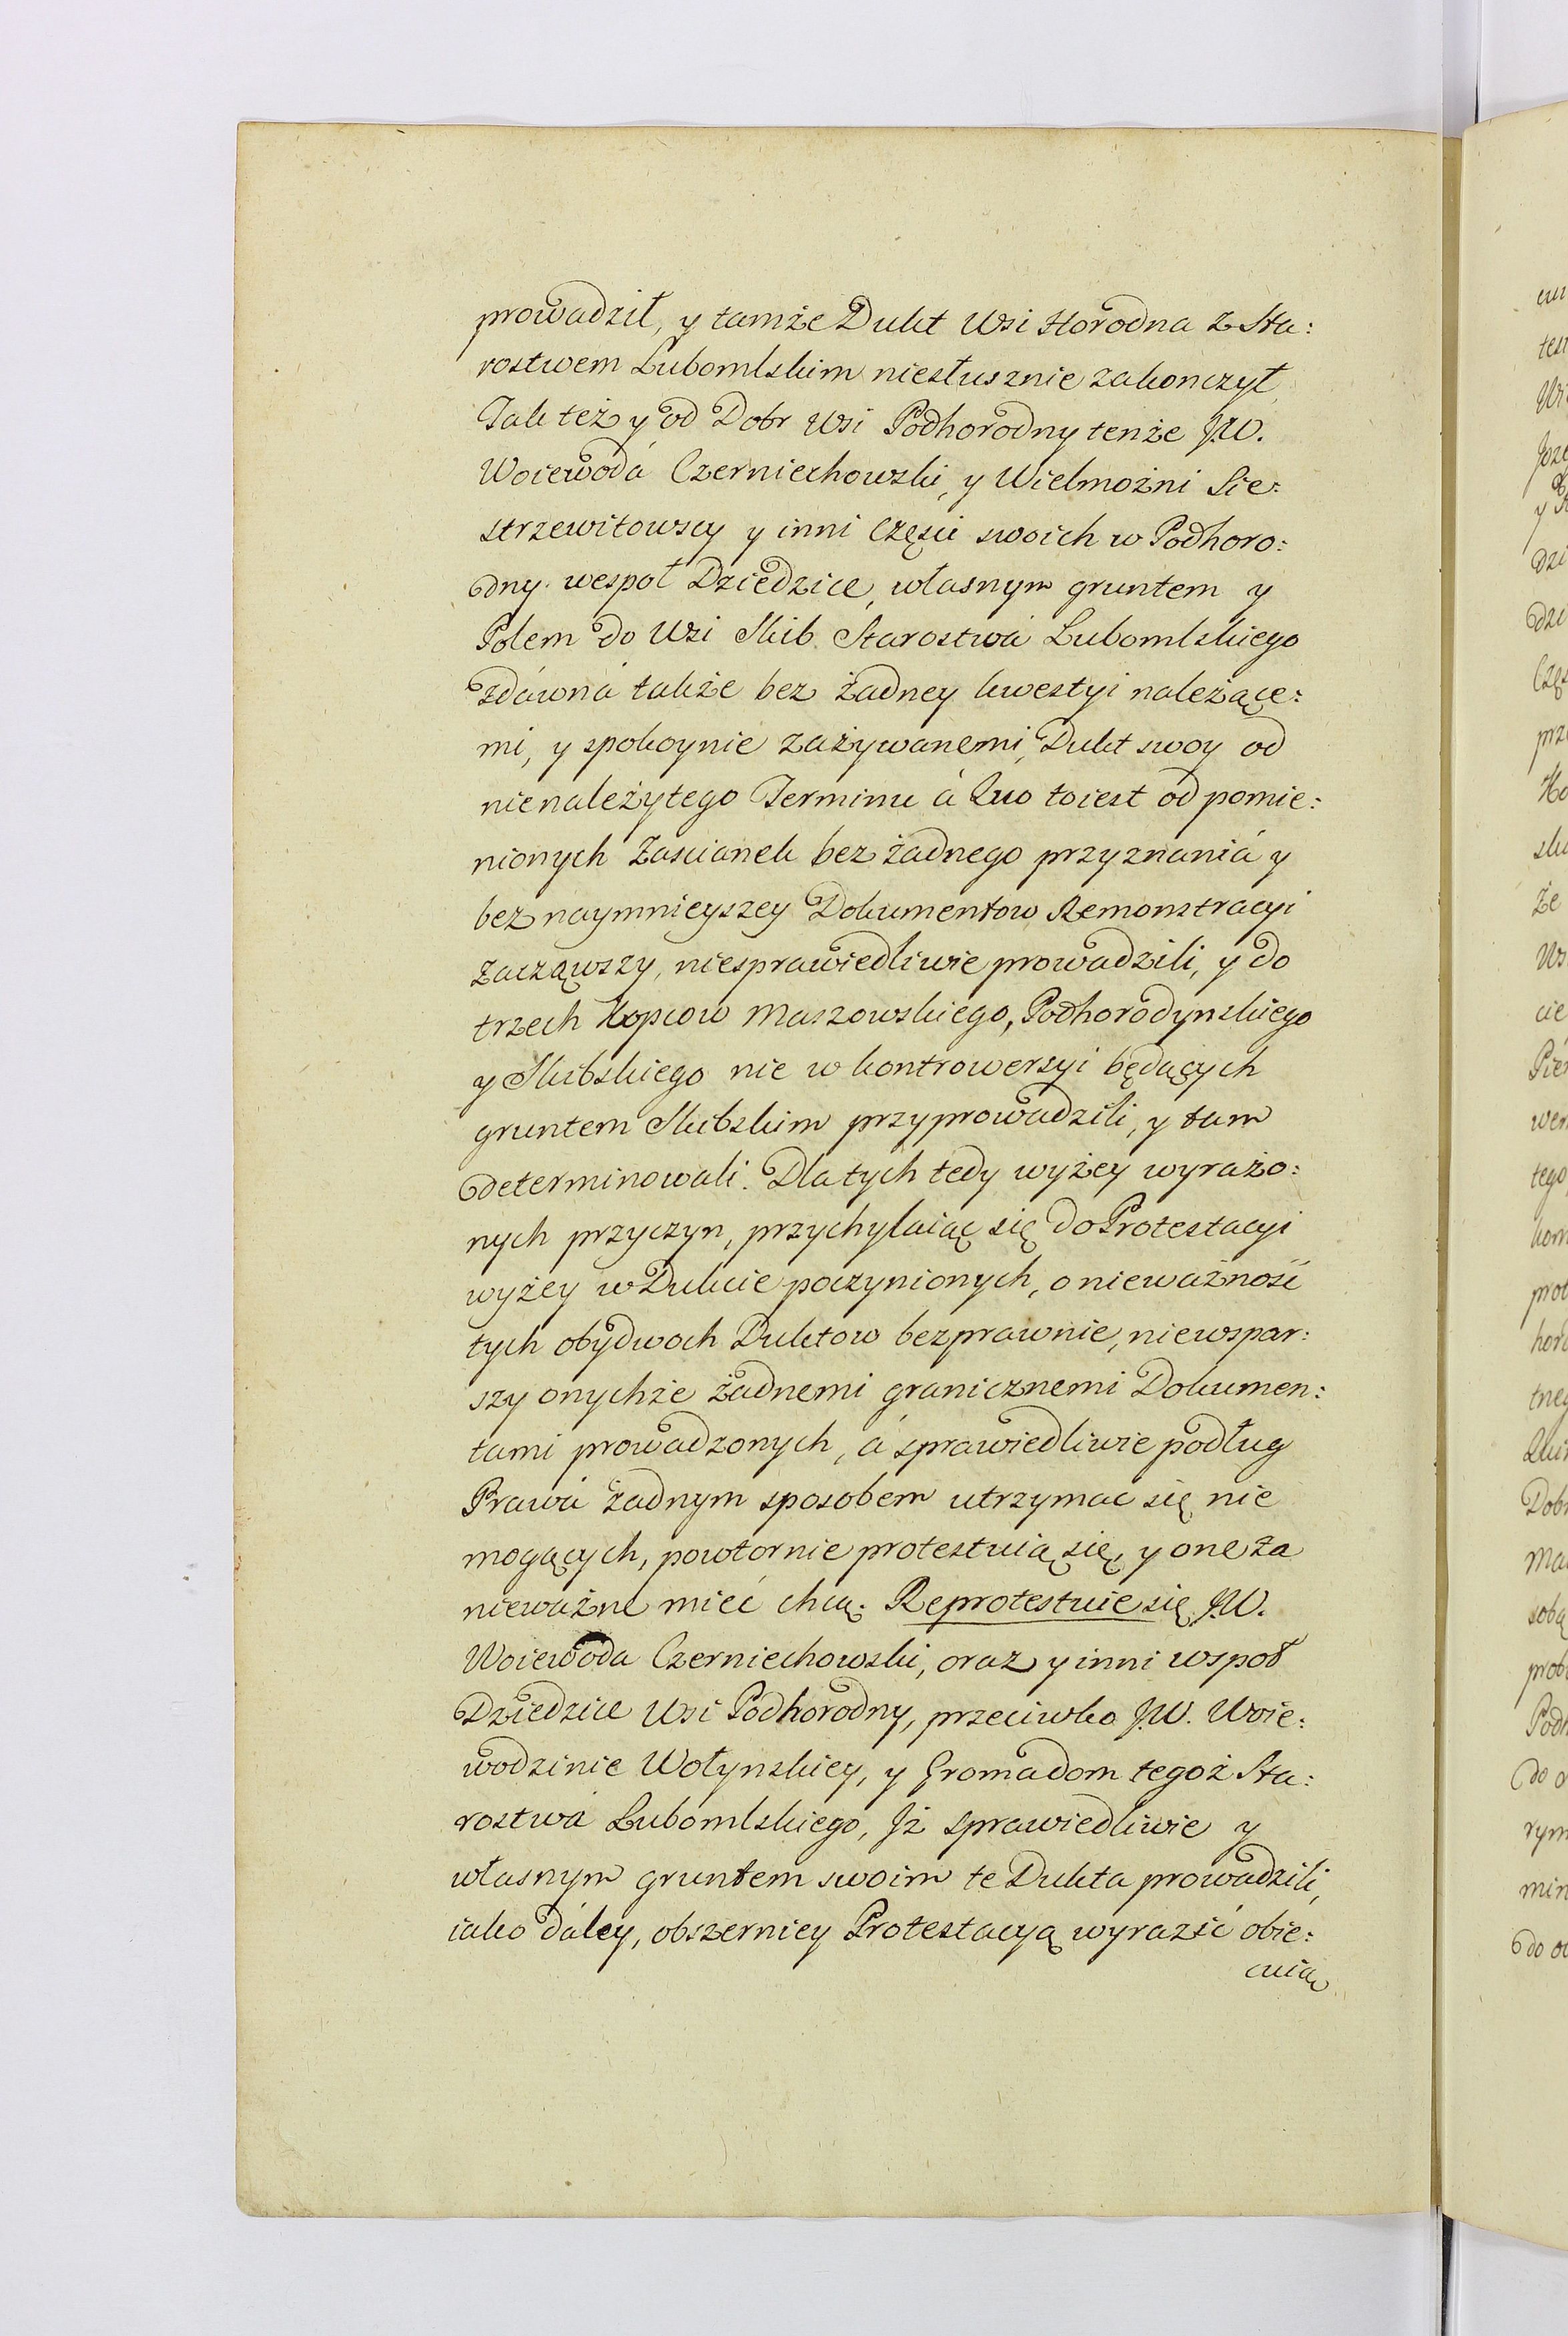 prowadził, y tamże Dukt Wsi Horodna z Sta:
rostwem Lubomlskim niesłusznie zakonczył,
Tak też y od Dobr Wsi Podhorodny tenże J.W.
Woiewodá Czerniechowski, y Wielmożni Sie:
strzewitowscy y inni Części swoich w Podhoro:
dny wespoł Dziedzice, własnym gruntem y
Polem do Wsi Skib Starostwá Lubomlskiego
zdawná także bez żadney kwestyi należące:
mi, y spokoynie zażywanemi, Dukt swoy od
nienależytego Terminu á Quo toiest od pomie:
nionych Zascianek bez żadnego przyznaniá y
bez naymnieyszey Dokumentow Remonstracyi
zacząwszy, niesprawiedliwie prowadzili, y do
trzech Kopcow Maszowskiego, Podhorodynskiego
y Skibskiego nie w kontrowersyi będących
gruntem Skibskim przyprowadzili, y tam
determinowali. Dla tych tedy wyżey wyrażo:
nych przyczyn, przychylaiąc się do Protestacyi
wyżey w Dukcie poczynionych, o nieważność
tych obydwoch Duktow bezprawnie, niewspar:
szy onychże żadnemi granicznemi Dokumen:
tami prowadzonych, á sprawiedliwie podług
Prawá żadnym sposobem utrzymac się nie
mogących, powtornie protestuią się, y one za
nieważne mieć chcą. Reprotestuie się J.W.
Woiewoda Czerniechowski, oraz y inni wspoł
Dziedzice Wsi Podhorodny, przeciwko J.W. Woie:
wodzinie Wołynskiey, y Gromadom tegoż Sta:
rostwá Lubomlskiego, Jż sprawiedliwie y
własnym gruntem swoim te Dukta prowadzili,
iako dáley, obszerniey Protestacyą wyrazić obie:
cuiąc